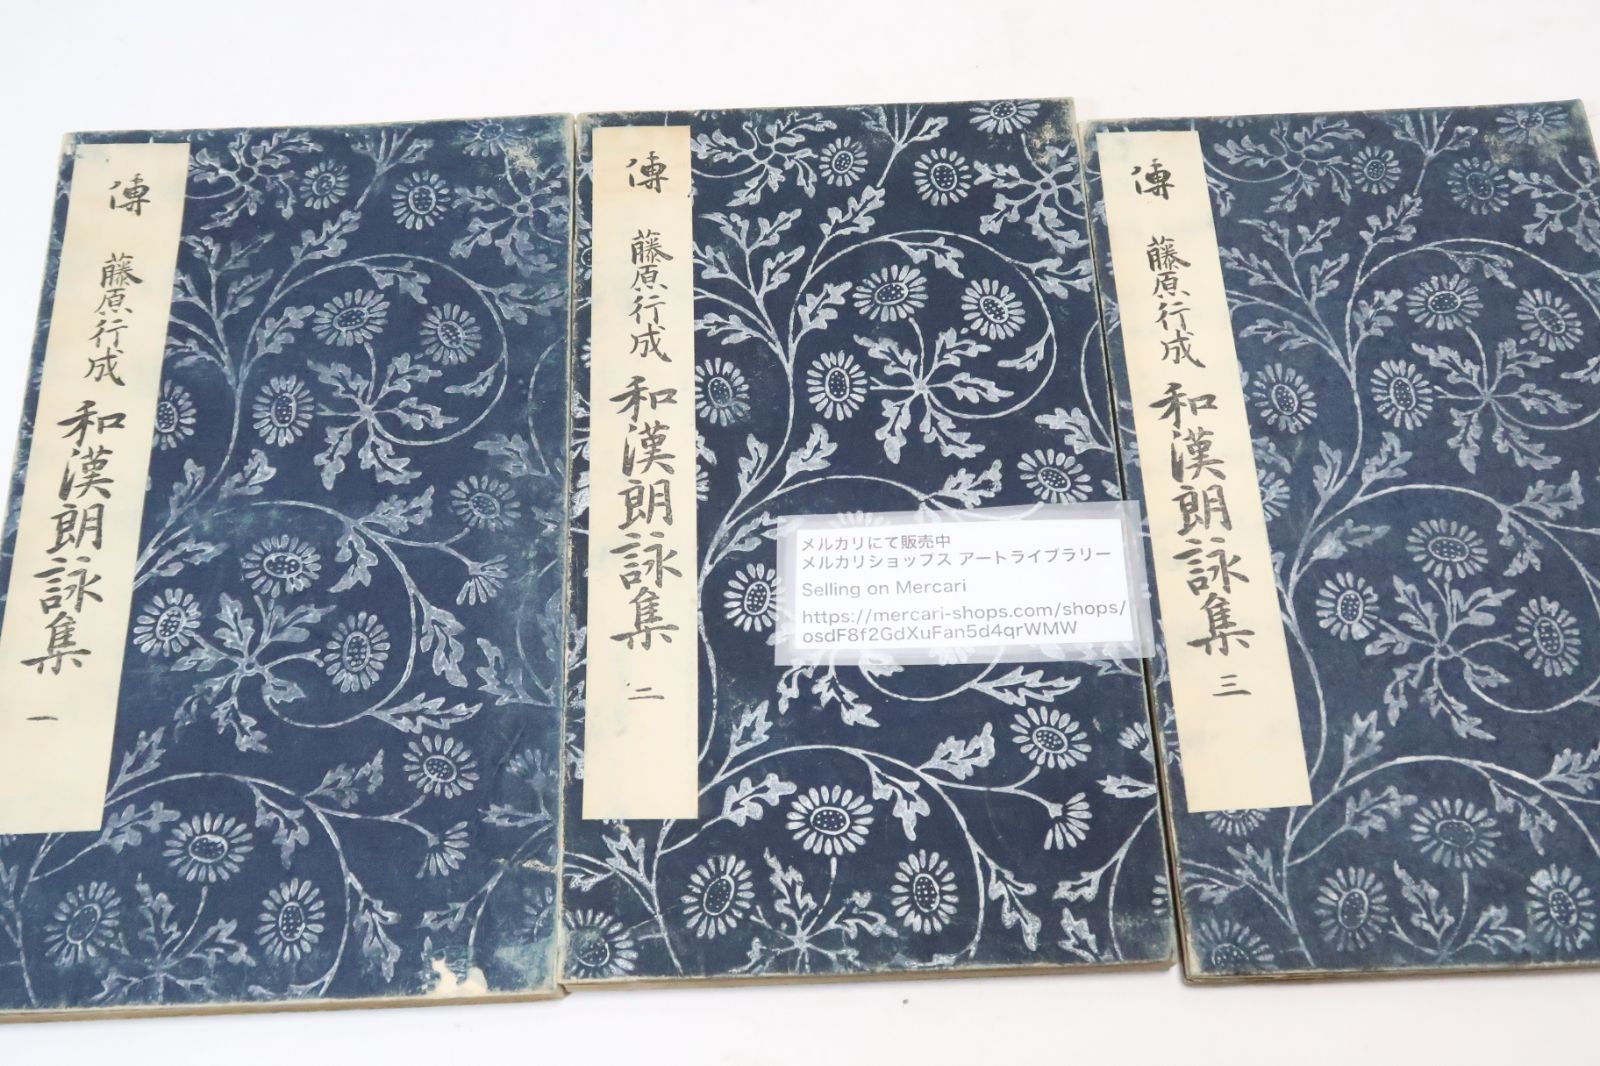 傳 藤原行成 和漢朗詠集 一
傳 藤原行成 和漢朗詠集 二
メルカリにて販売中
メルカリショップス アートライブラリー
Selling on Mercari
https://mercari-shops.com/shops/
osdF8f2GdXuFan5d4qrWMW
傳 藤原行成 和漢朗詠集 三